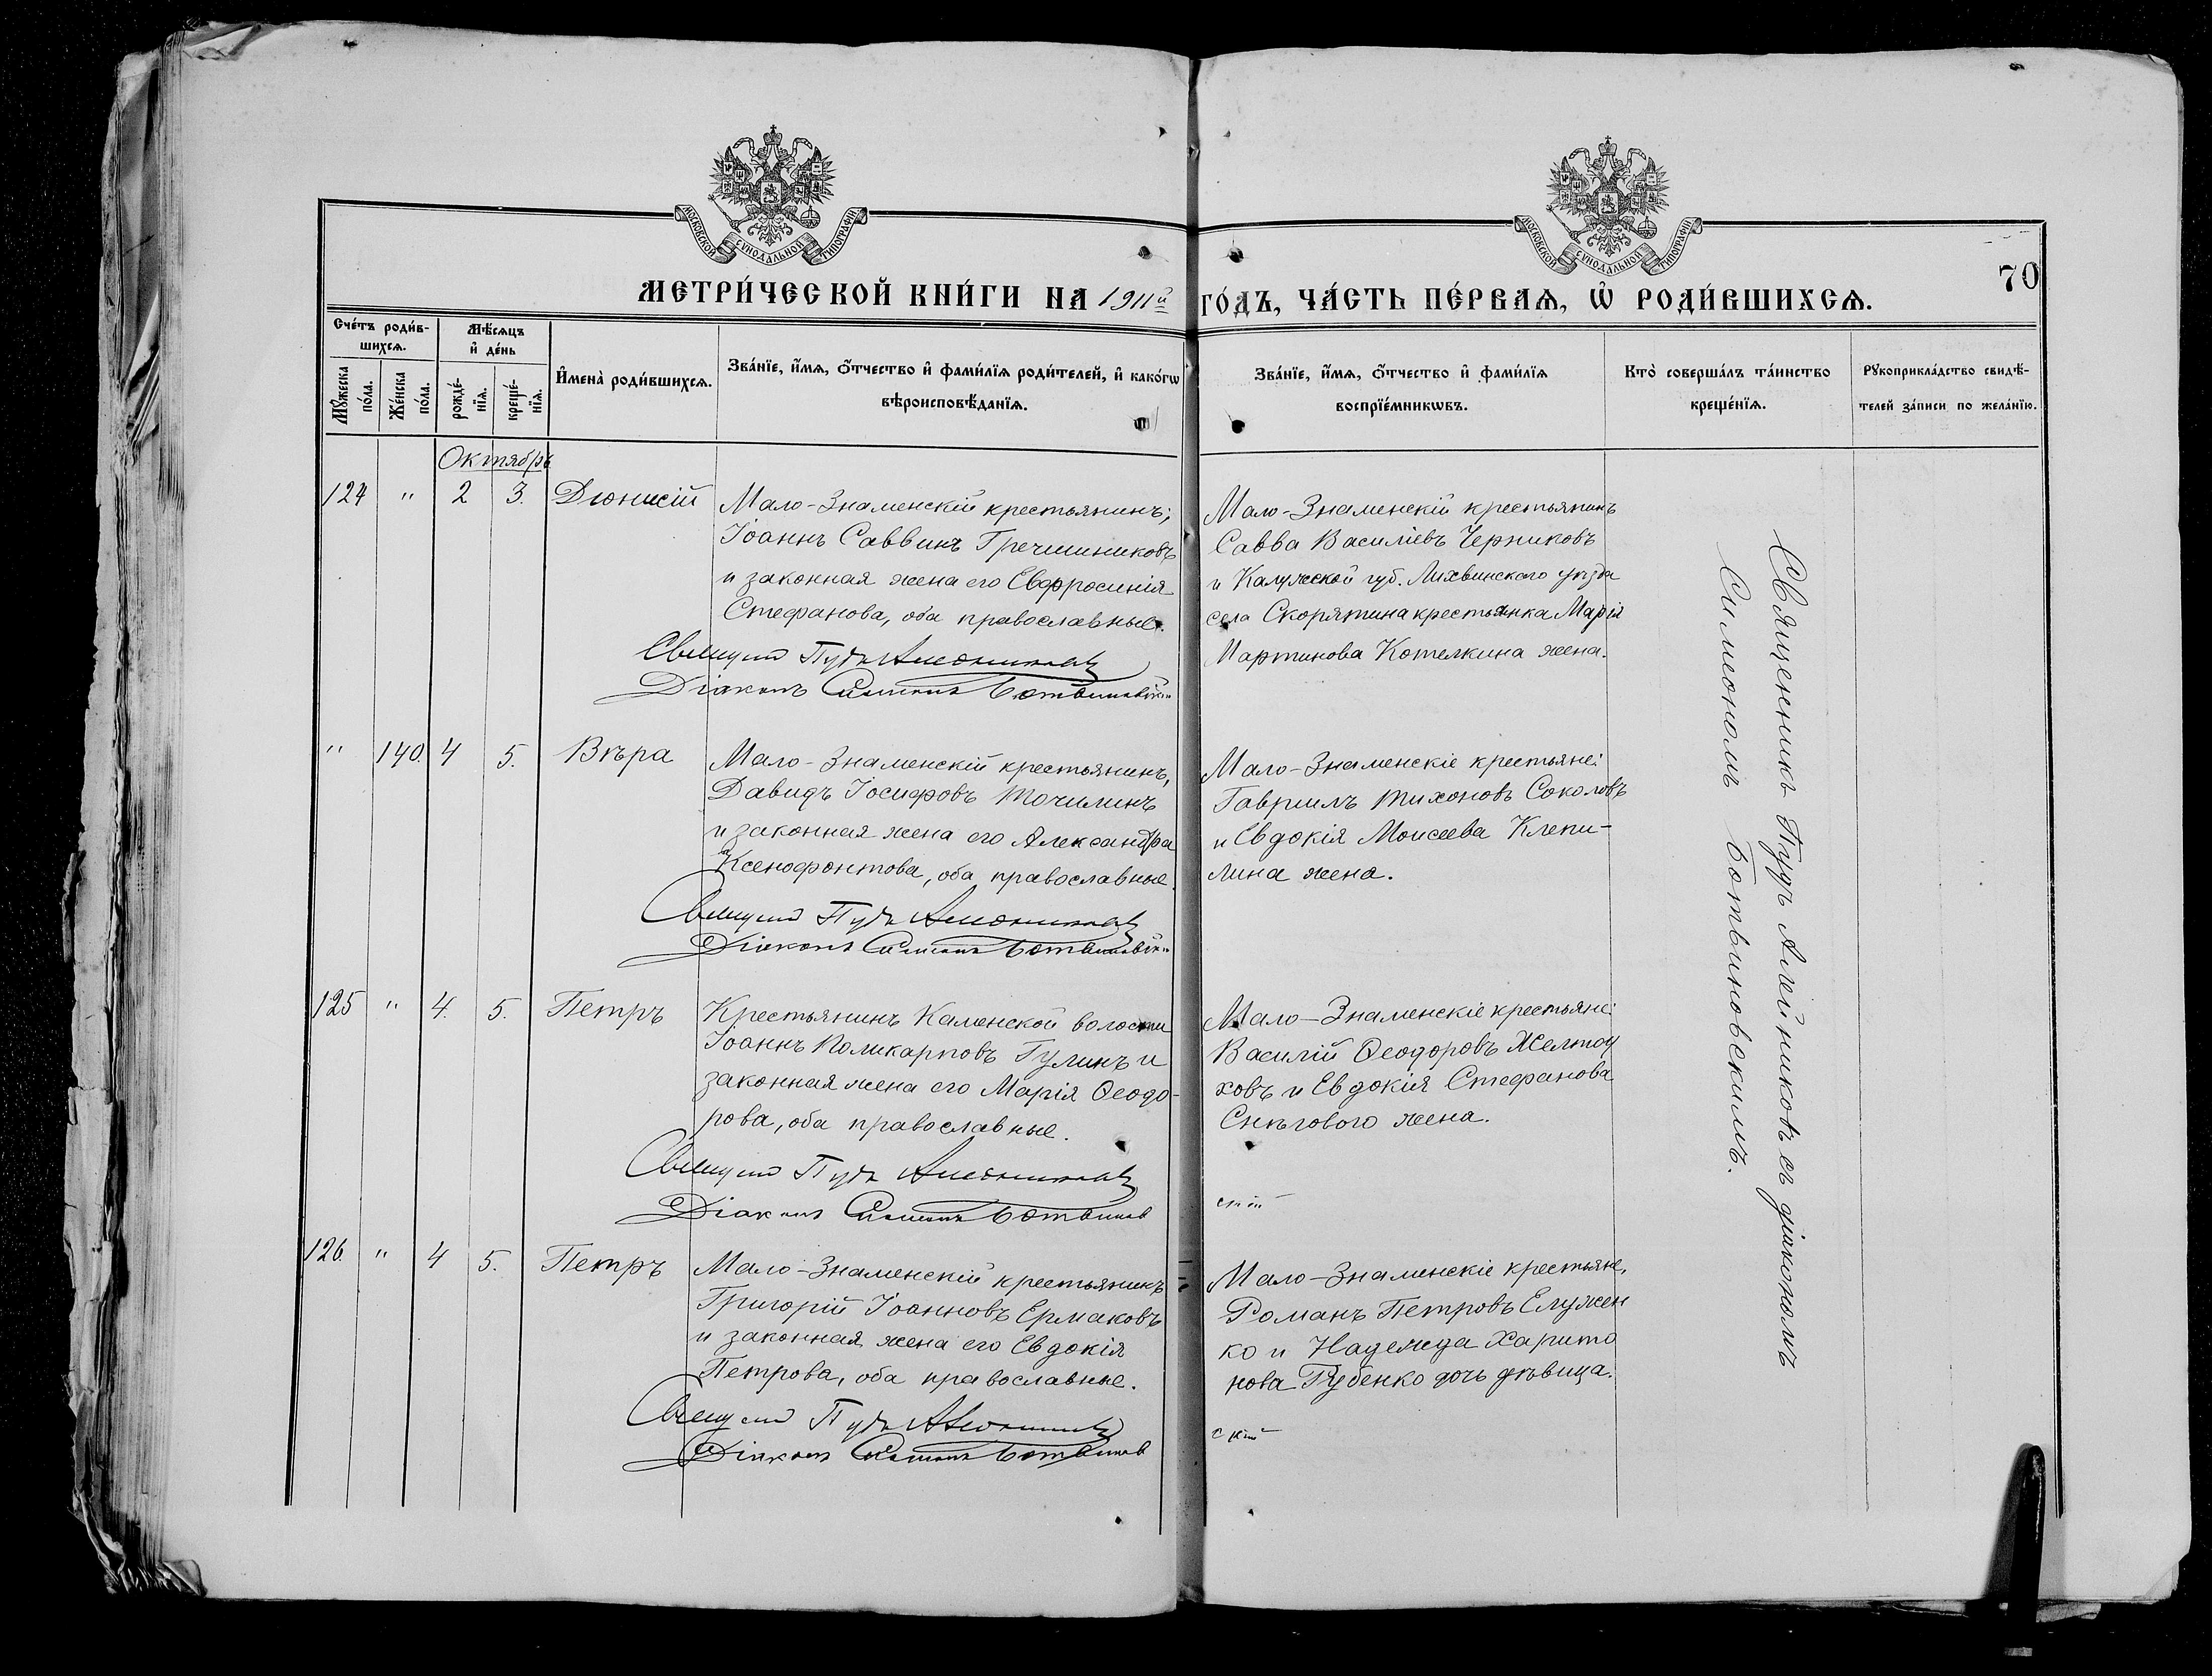 МОСКОВСКОЙ СУНОДАЛЬНОЙ ТИПОГРАФІИ
МОСКОВСКОЙ СУНОДАЛЬНОЙ ТИПОГРАФІИ
70
МЕТРИ́ЧЕСКОЙ КНИ́ГИ НА 1911й ГО́ДЪ, ЧА́СТЬ ПЕ́РВАѦ, Ѡ҆ РОДИ́ВШИХСѦ.
Сче́тъ роди́в-
шихсѧ.
Мꙋ́жеска
по́ла.
Же́нска
по́ла.
Мѣ́сѧцъ
и҆ де́нь
рожде́-
нїѧ.
креще́-
нїѧ.
И҆мена̀ роди́вшихсѧ.
Зва́нїе, и҆́мѧ, ѻ҆́тчество и҆ фами́лїѧ роди́телей, и҆ како́гѡ
вѣроисповѣ́данїѧ.
Зва́нїе, и҆́мѧ, ѻ҆́тчество и҆ фами́лїѧ
воспрїе́мникѡвъ.
Кто̀ соверша́лъ та́инство
креще́нїѧ.
Рꙋкоприкла́дство свидѣ́-
телей за́писи по жела́нїю.
Октябрь
124 " 2 3. Діонисій
Мало-Знаменскій крестьянинъ,
Іоаннъ Саввинъ Гречишниковъ
и законная жена его Евфросинія
Стефанова, оба православные.
Священник Пудъ Алейниковъ
Діаконъ Симеонъ Ботвиновскій
Мало-Знаменскій крестьянинъ
Савва Василіевъ Черниковъ
и Калужской губ. Лихвинскаго уѣзда
села Скорятина крестьянка Марія
Мартинова Котелкина жена.
" 140. 4 5. Вѣра
Мало-Знаменскій крестьянинъ,
Давидъ Іосифовъ Точилинъ
и законная жена его Александра
Ксенофонтова, оба православные.
Священник Пудъ Алейниковъ
Діаконъ Симеонъ Ботвиновскій
Мало-Знаменскіе крестьяне:
Гавриилъ Тихоновъ Соколовъ
и Евдокія Моисеева Клепи-
лина жена.
125 " 4. 5. Петръ
Крестьянинъ Каменской волости
Іоаннъ Поликарповъ Гулинъ и
законная жена его Марія Ѳеодо-
рова, оба православные.
Священник Пудъ Алейниковъ
Діаконъ Симеонъ Ботвиновскій
Мало-Знаменскіе крестьяне:
Василій Ѳеодоровъ Желтоу
ховъ и Евдокія Стефанова
Снѣгового жена.
126. " 4 5. Петръ
Мало-Знаменскій крестьянинъ
Григорій Іоанновъ Ермаковъ
и законная жена его Евдокія
Петрова, оба православные.
Священник Пудъ Алейниковъ
Діаконъ Симеонъ Ботвиновскій
Мало-Знаменскіе крестьяне,
Романъ Петровъ Елужен
ко и Надежда Харито
нова Губенко дочь дѣвица.
Священникъ Пудъ Алейниковъ съ діакономъ
Симеономъ Ботвиновскимъ.